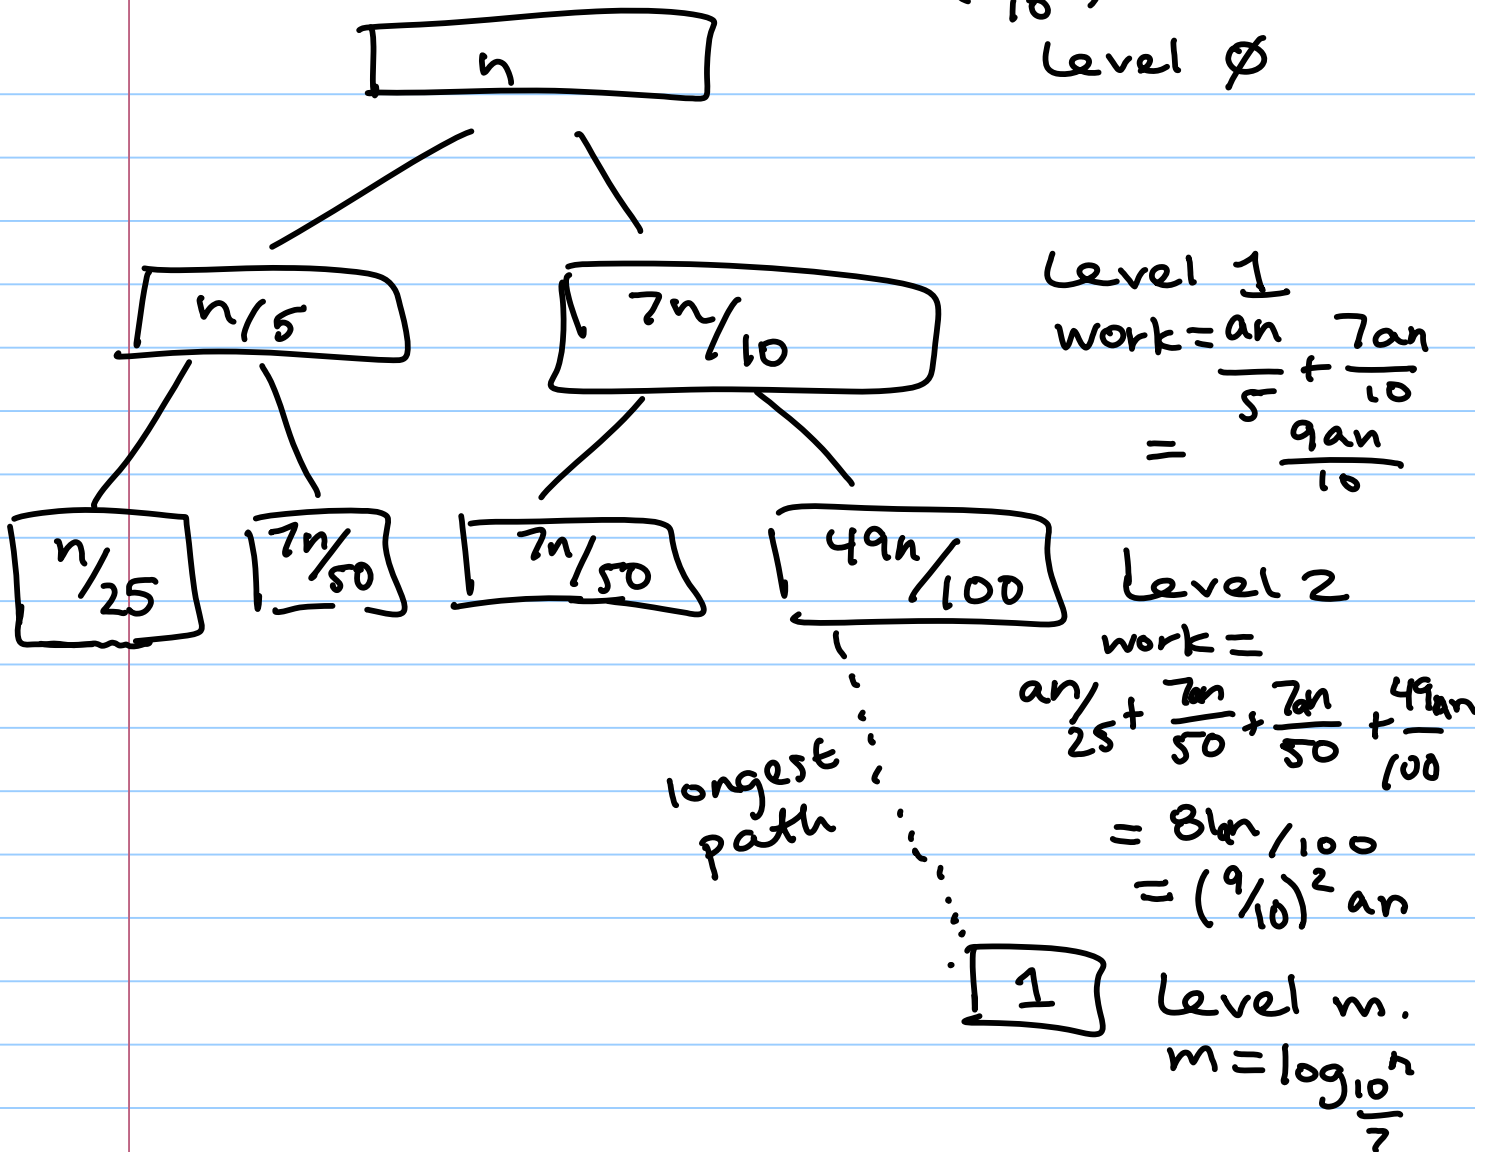 10
Level 0
n
n/5
7n/10
Level 1
work = an/5 + 7an/10
= 9an/10
n/25
7n/50
7n/50
49n/100
Level 2
work =
an/25 + 7an/50 + 7an/50 + 49an/100
= 81an/100
= (9/10)² an
longest
path
1
Level m.
m = log_{10/7} n